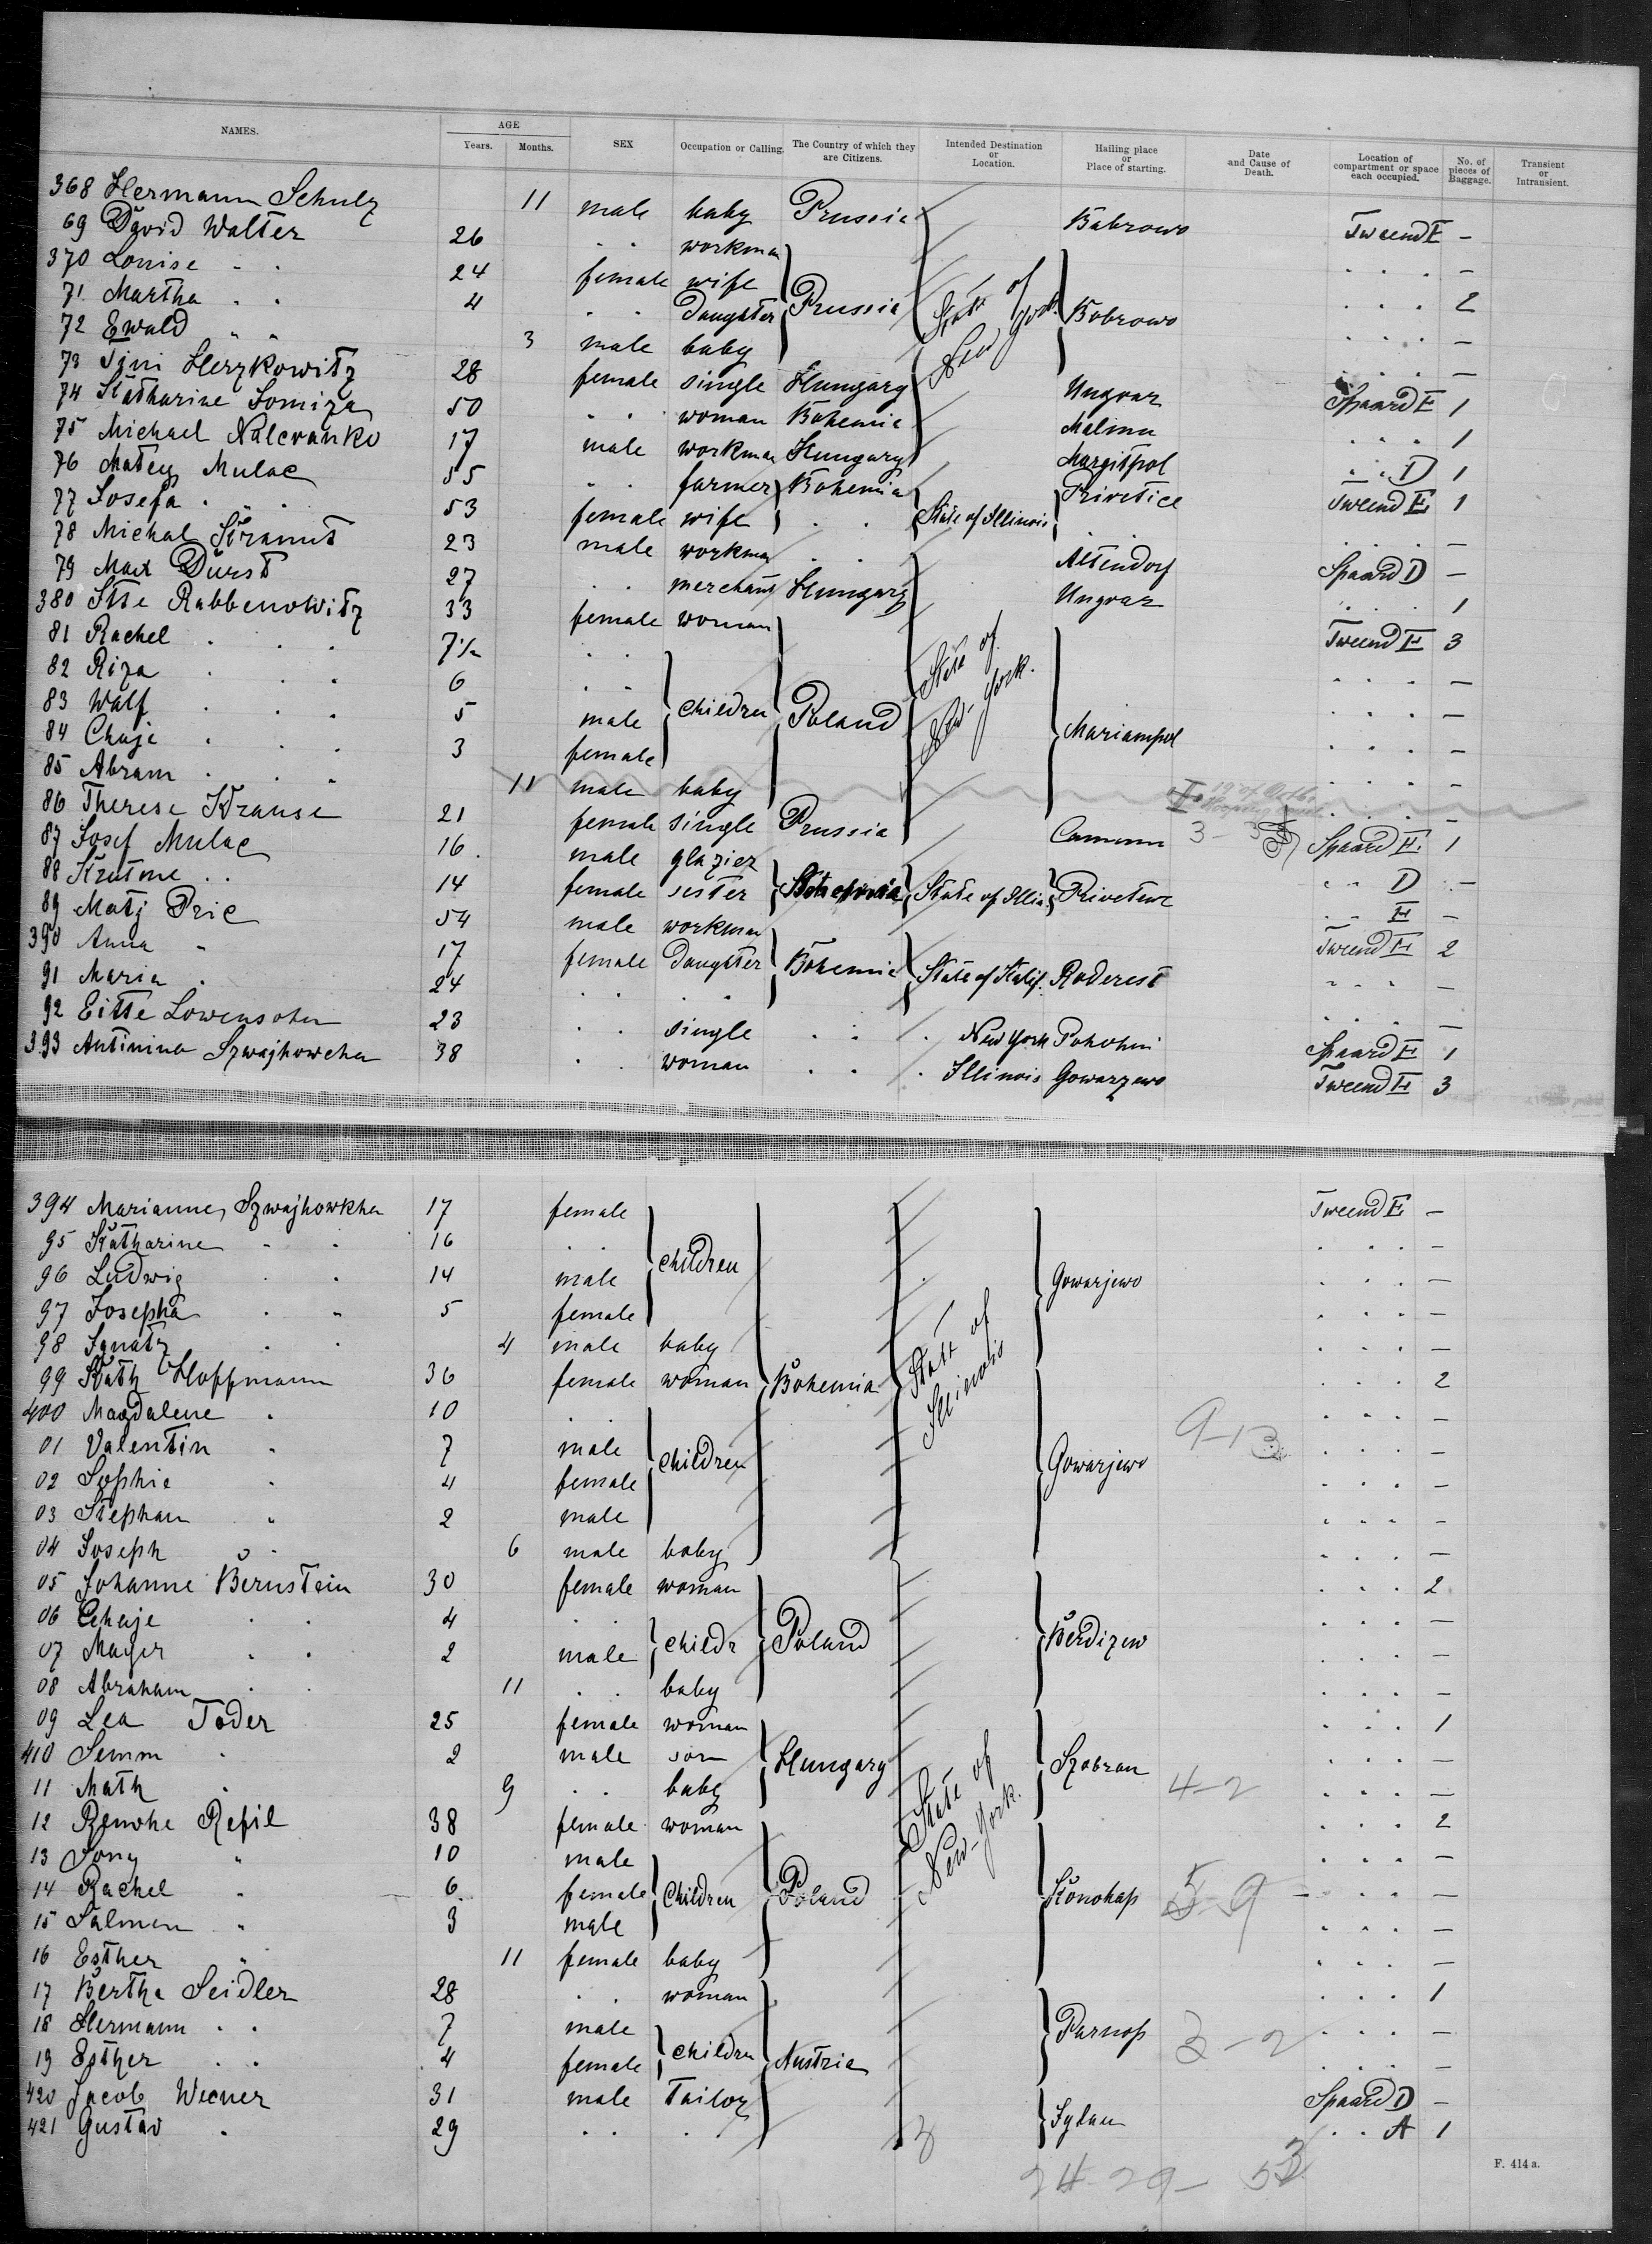 NAMES. AGE Years. Months. SEX Occupation or Calling. The Country of which they are Citizens. Intended Destination or Location. Hailing place or Place of starting. Date and Cause of Death. Location of compartment or space each occupied. No. of pieces of Baggage. Transient or Intransient.
368 Hermann Schulz 11 male baby Prussia Babrowo Tweend E -
69 David Walter 26 . . workman . . . -
370 Louise - . 24 female wife . . . 2
71 Martha . . 4 . . Daughter Prussia State of New York. Bobrowo . . . -
72 Ewald " " 3 male baby . . . -
73 Herzkowitz 28 female single Hungary Ungvar Spaard E 1
74 Katharine Tomiza 50 . . woman Bohemia Malinu . . . 1
75 Michael Nalevanko 17 male workman Hungary Margitfol . . D 1
76 Matey Mulac 55 . . farmer Bohemia Privetice Tweend E 1
77 Josefa . . . 53 female wife . . State of Illinois . . . . . -
78 Michal 23 male workman . . Altendorf Spaard D -
79 Max Durst 27 . . merchant Hungary Ungvar . . . 1
380 Rabbenowitz 33 female woman Tweend E 3
81 Rachel . . . 7½ . . . . . -
82 Riza . . . 6 . . . . . -
83 Walf . . . 5 male Children Poland State of New-York. Mariampol . . . -
84 Chaje . . . 3 female . . . -
85 Abram . . . 11 male baby . . . -
86 Therese Krause 21 female single Prussia 3 - 3 Spaard E. 1
87 Josef Mulac 16. male glazier . . D -
88 . . 14 female sister State of Illin. . . E -
89 Matj Pric 54 male workman Tweend E 2
390 Anna " 17 female Daughter Bohemia State of Kalif. Roderest . . . -
91 Maria . 24 . . . . . . . -
92 Eitte Lowensohn 23 . . single . . . New York Spaard E 1
393 Antinina 38 . . woman . . . Illinois Gowarzewo Tweend E 3
394 Marianne, Szwajhowkha 17 female Tweend E -
95 Katharine - . 16 . . children . . . -
96 Ludwig . . 14 male Gowarjewo . . . -
97 Josepha . " 5 female . . . -
98 Ignatz . . 4 male baby . . . -
99 Kath Hoffmann 36 female woman Bohemia State of Illinois . . . 2
400 Magdalene . 10 . . 9-13 . . . -
01 Valentin " 7 male children . . . -
02 Sophie . 4 female Gowarjewo . . . -
03 Stephan " 2 male . . . -
04 Joseph . 6 male baby . . . -
05 Johanne Bernstein 30 female woman . . . 2
06 Chaje . . 4 . . . . . -
07 Mayer . . 2 male childr Poland Berdizew . . . -
08 Abraham . . 11 . . baby . . . -
09 Lea Toder 25 female woman . . . 1
410 Semm . 2 male son Hungary Szobran . . . -
11 Math " 9 . . baby State of New-York. 4-2 . . . -
12 Refil 38 female woman . . . 2
13 " 10 male . . . -
14 Rachel " 6. female Children Poland Konohap 5-9 . . . -
15 Salmen " 3 male . . . -
16 Esther " 11 female baby . . . -
17 Bertha Seidler 28 . . woman . . . 1
18 Hermann . . 7 male Parnop 3-2 . . . -
19 Esther . . 4 female children Austria . . . -
420 Jacob Wiener 31 male Tailor Spaard D -
421 Gustav . 29 . . . . . A 1
24-29- 53
F. 414 a.